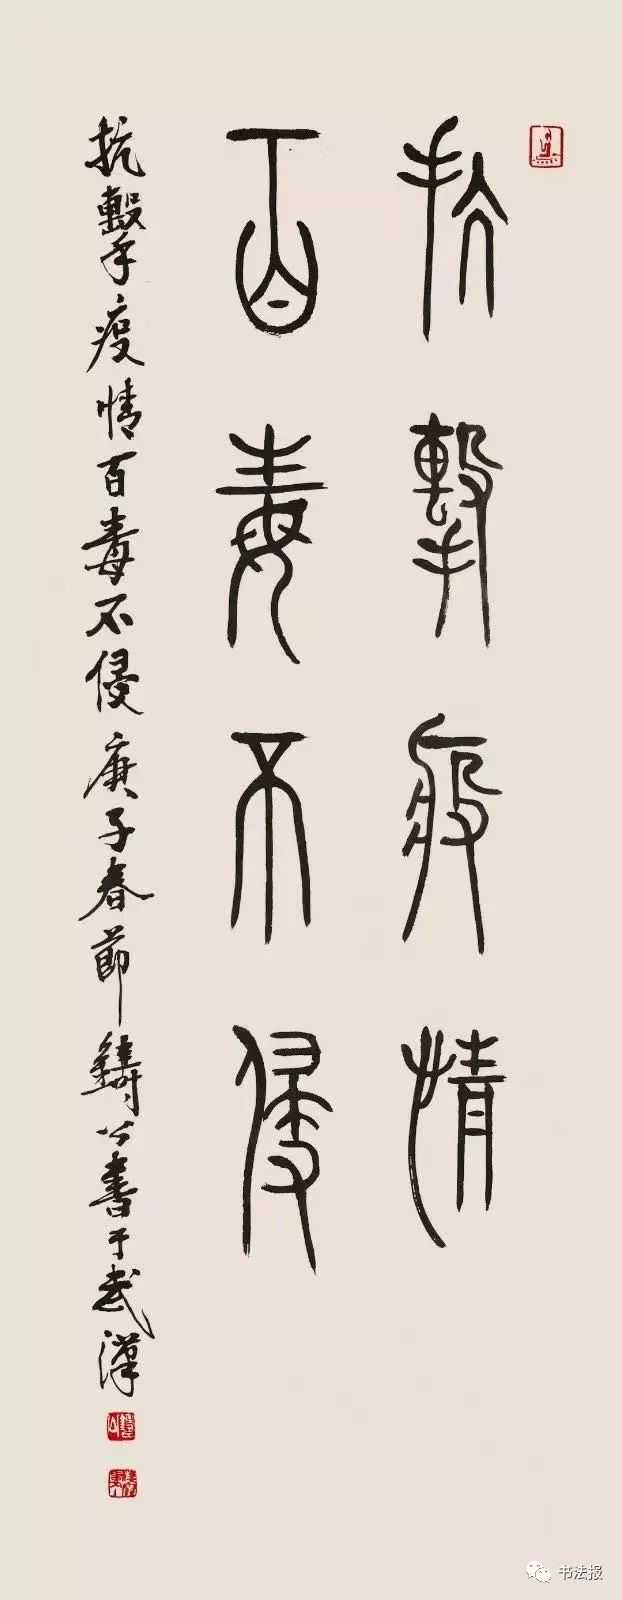 抗擊疫情
百毒不侵
抗擊疫情百毒不侵庚子春節鑄公書于武漢
书法报